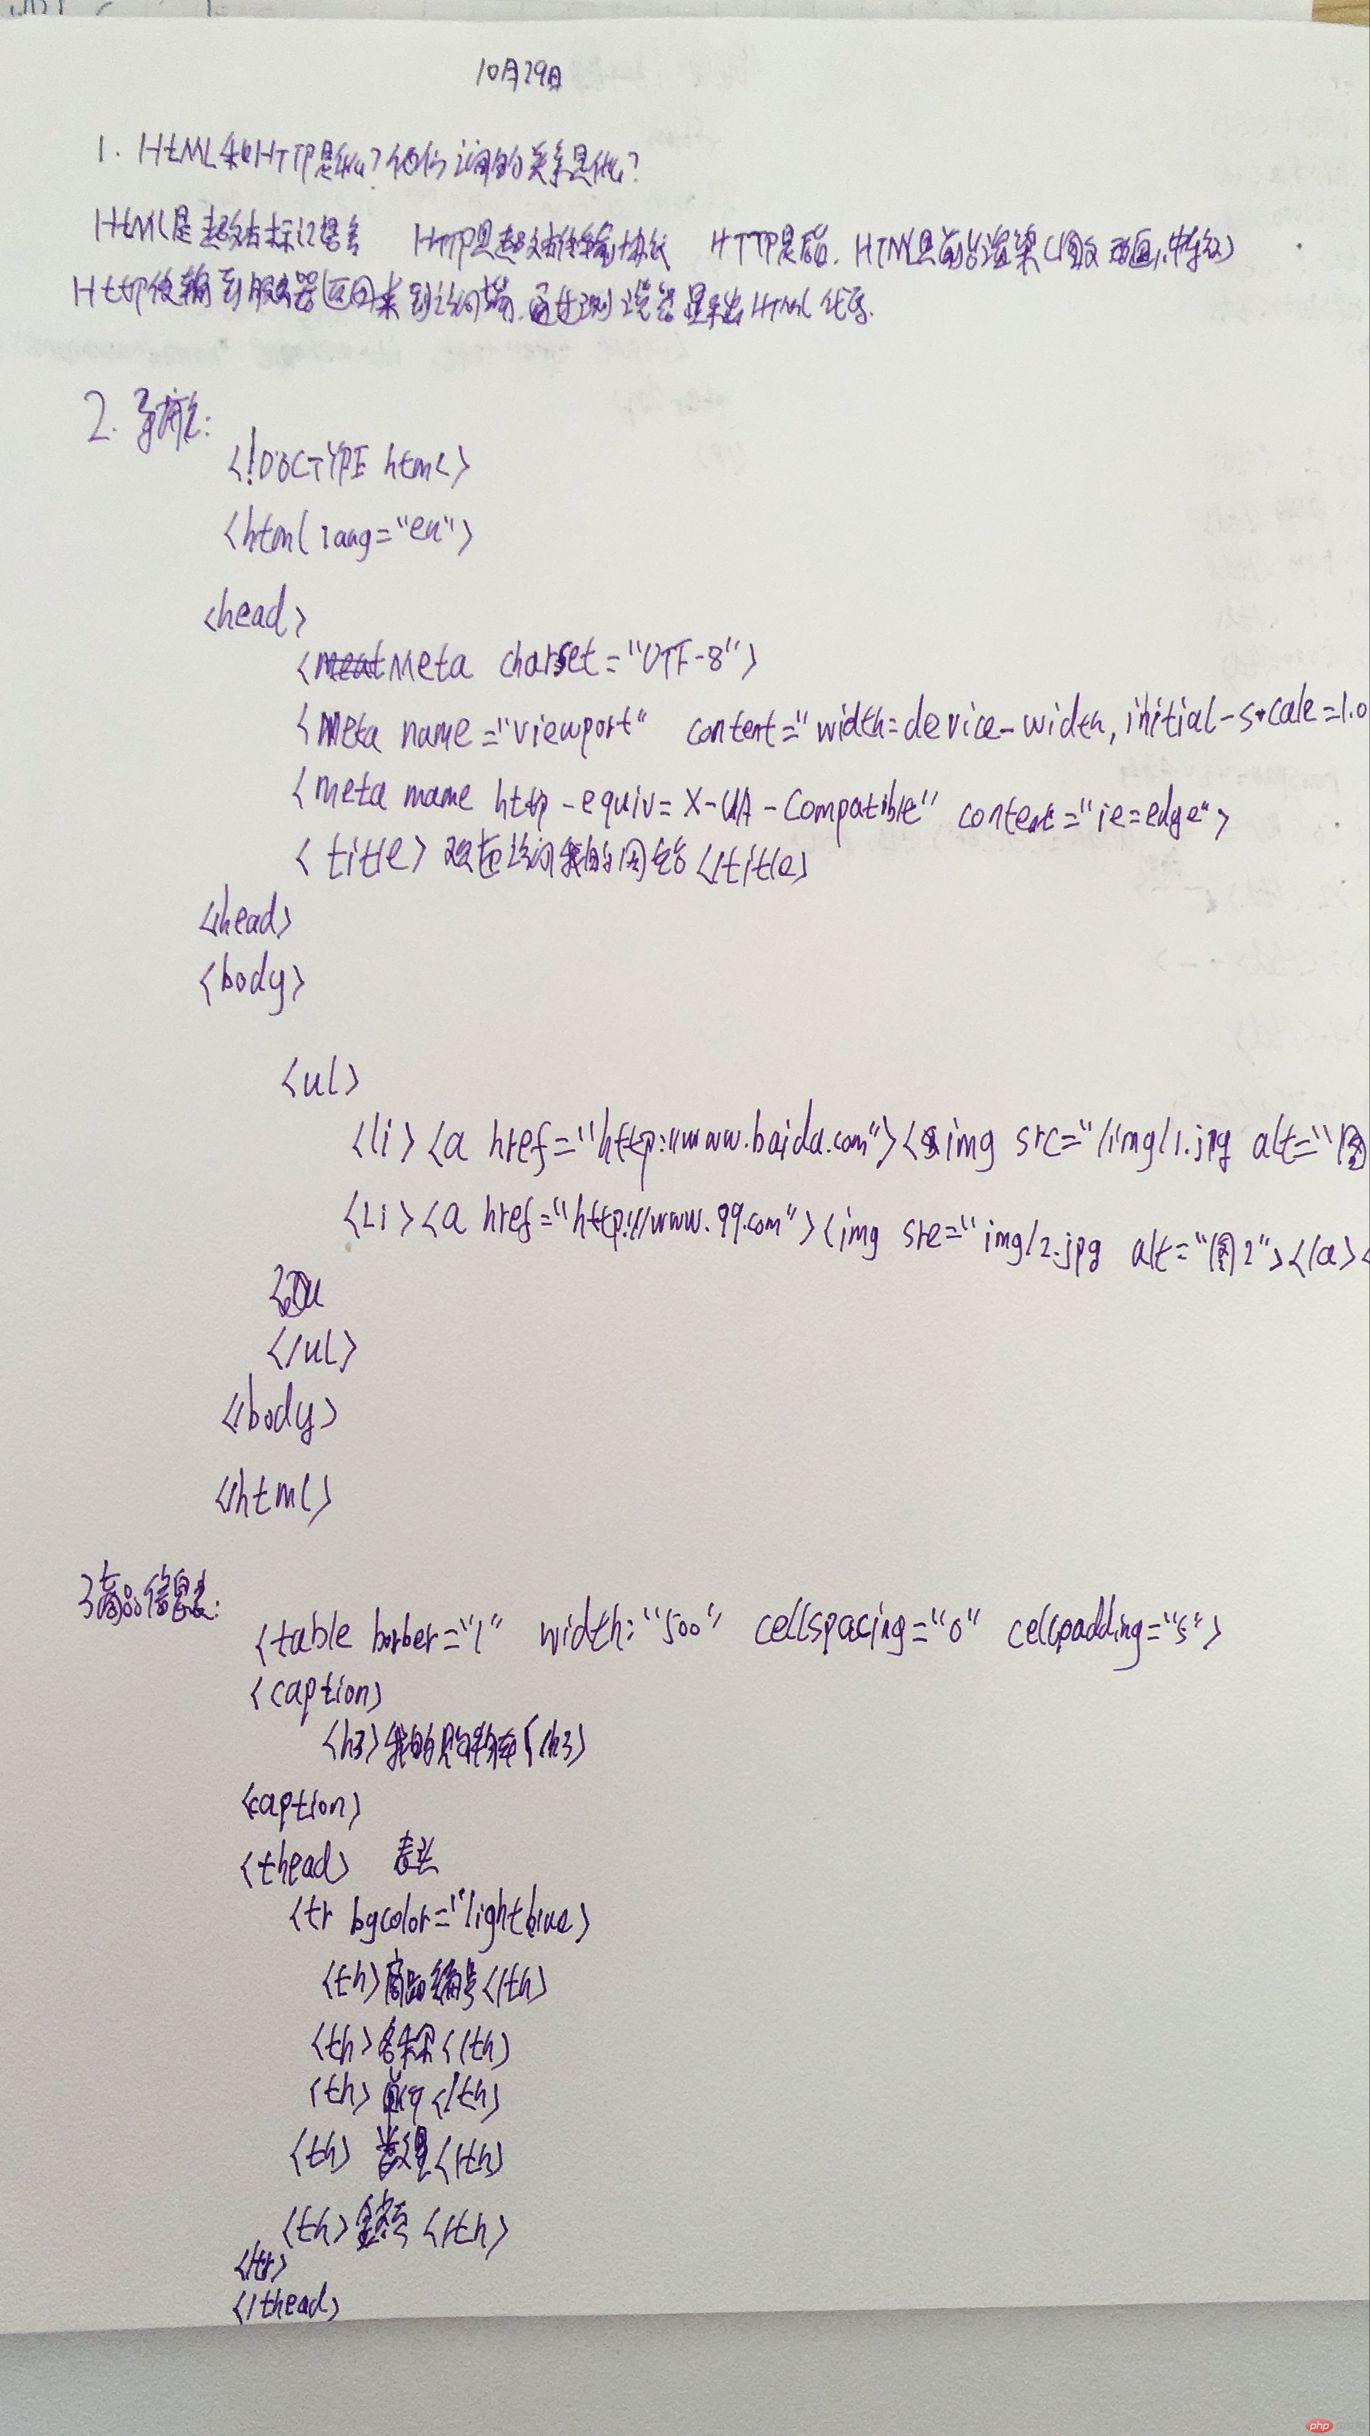 10月29日
1. HtML和HTTP是什么?他们之间的关系是什么?
HtML是超文本标记语言 HTTP是超文本传输协议 HTTP是 HTML是前台渲染(
Http传输到服务器返回来到访问端.通过浏览器显示出HTML代码.
2. 导航:
<!DOCTYPE html>
<html lang="en">
<head>
<Meta charset="UTF-8">
<Meta name="viewport" content="width=device-width, initial-scale=1.0
<meta mame http-equiv=X-UA-Compatible" content="ie=edge">
<title>欢迎访问我的网站</title>
</head>
<body>
<ul>
<li><a href="http://www.baidu.com"><img src="/img/1.jpg alt="图
<Li><a href="http://www.qq.com"><img src="img/2.jpg alt="图2"></a><
</ul>
</body>
</html>
3商品信息表:
<table borber="1" width:"500" cellspacing="0" cellpadding="5">
<caption>
<h3>我的购物车</h3>
<caption>
<thead> 表头
<tr bgcolor="lightblue>
<th>商品编号</th>
<th>名称</th>
<th>单价</th>
<th>数量</th>
<th>金额</th>
</tr>
</thead>
php